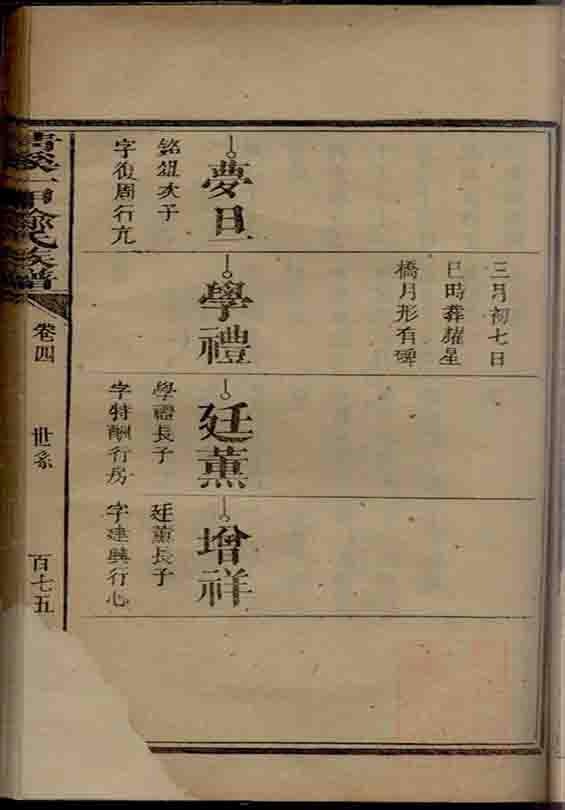 三月初七日
巳時葬耀星
橋月形有碑
夢旦
銘俎次子
字復周行亢
學禮
廷薰
學禮長子
字特酬行房
增祥
廷薰長子
字建興行心
族譜
卷四
世系
百七五